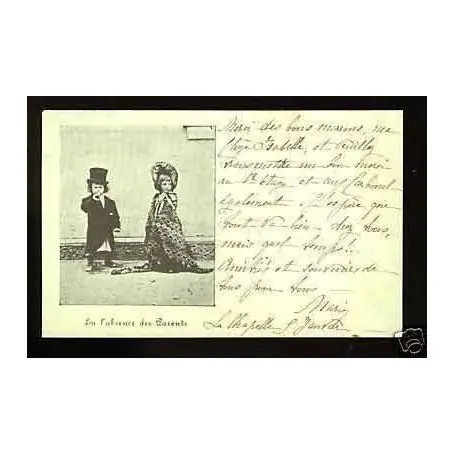 Merci des bons marrons, ma
chère Isabelle, et veuillez
transmettre un bon merci
au 1er étage et aux
également. J'espère que
tout va bien chez vous,
mais quel temps!
Amitiés et souvenirs de
tous pour vous
Marie
La Chapelle
En l'absence des Parents